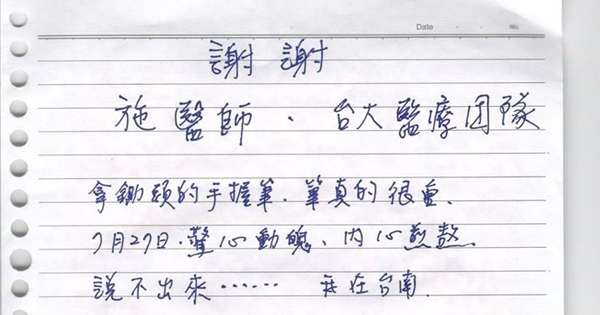 Date No.
謝謝
施醫師、台大醫療团隊
拿鋤頭的手握筆.筆真的很重.
7月27日.驚心動魄、內心煎熬.
說不出來…… 我在台南.